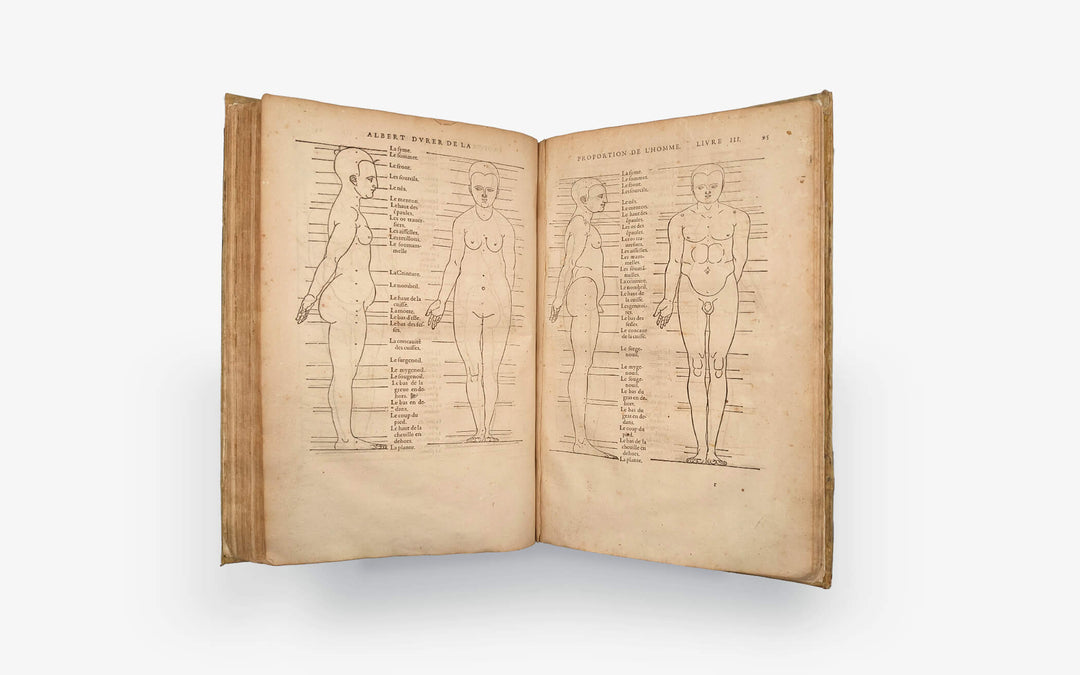 ALBERT DVRER DE LA
La syme.
Le sommet.
Le front.
Les sourcils.
Le nés.
Le menton.
Le haut des
épaules.
Les os trauer-
siers.
Les aisselles.
Les tetillons.
Le soumam-
melle
La Ceinture.
Le nombril.
Le haut de la
cuisse.
La motte.
Le bas d'isse.
Le bas des fes-
ses.
La concauité
des cuisses.
Le surgenoil.
Le mygenoil.
Le sougenoil.
Le bas de la
greue en de-
hors.
Le bas en de-
dans.
Le coup du
pied.
Le haut de la
cheuille en
dehors.
La plante.
PROPORTION DE L'HOMME. LIVRE III. 95
La syme.
Le sommet.
Le front.
Les sourcils.
Le nés.
Le menton.
Le haut des
épaules.
Les os des
épaules.
Les os tra-
uersiers.
Les aisselles.
Les mam-
melles.
Les soumā-
melles.
La ceinture.
Le nombril.
Le haut de
la cuisse.
Les genitoi-
res.
Le bas des
fesses.
Le concaue
de la cuisse.
Le surge-
nouil.
Le myge-
nouil.
Le souge-
nouil.
Le bas du
gras en de-
hors.
Le bas du
gras en de-
dans.
Le coup du
pied.
Le bas de la
cheuille en
dehors.
La plante.